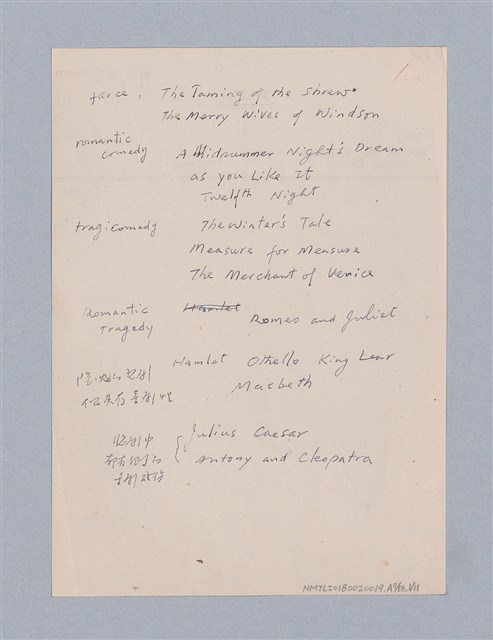 farce : The Taming of the Shrew
The Merry Wives of Windson
romantic
comedy
A Midsummer Night's Dream
as you Like It
Twelfth Night
tragicomedy
The Winter's Tale
Measure for Measure
The Merchant of Venice
Romantic
Tragedy
Hamlet
Romeo and Juliet
Hamlet Othello King Lear
Macbeth
Julius Caesar
Antony and Cleopatra